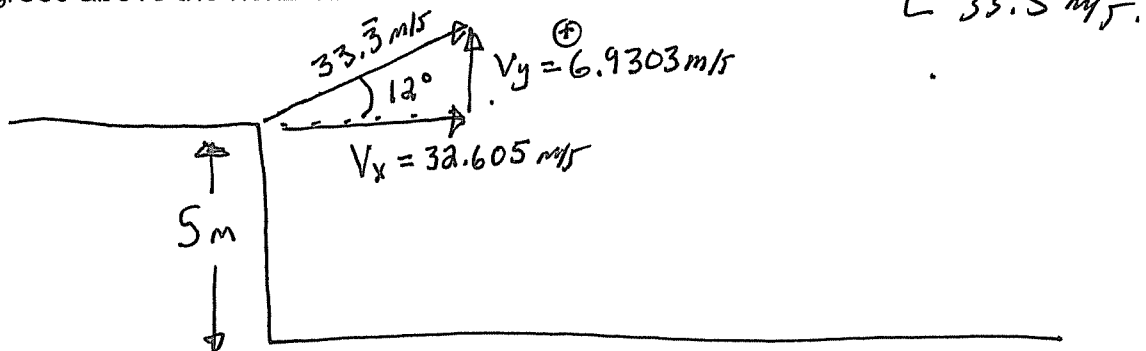 above the
33.3̄ m/s
33.3 m/s.
12°
⊕
Vy = 6.9303 m/s
Vx = 32.605 m/s
5m